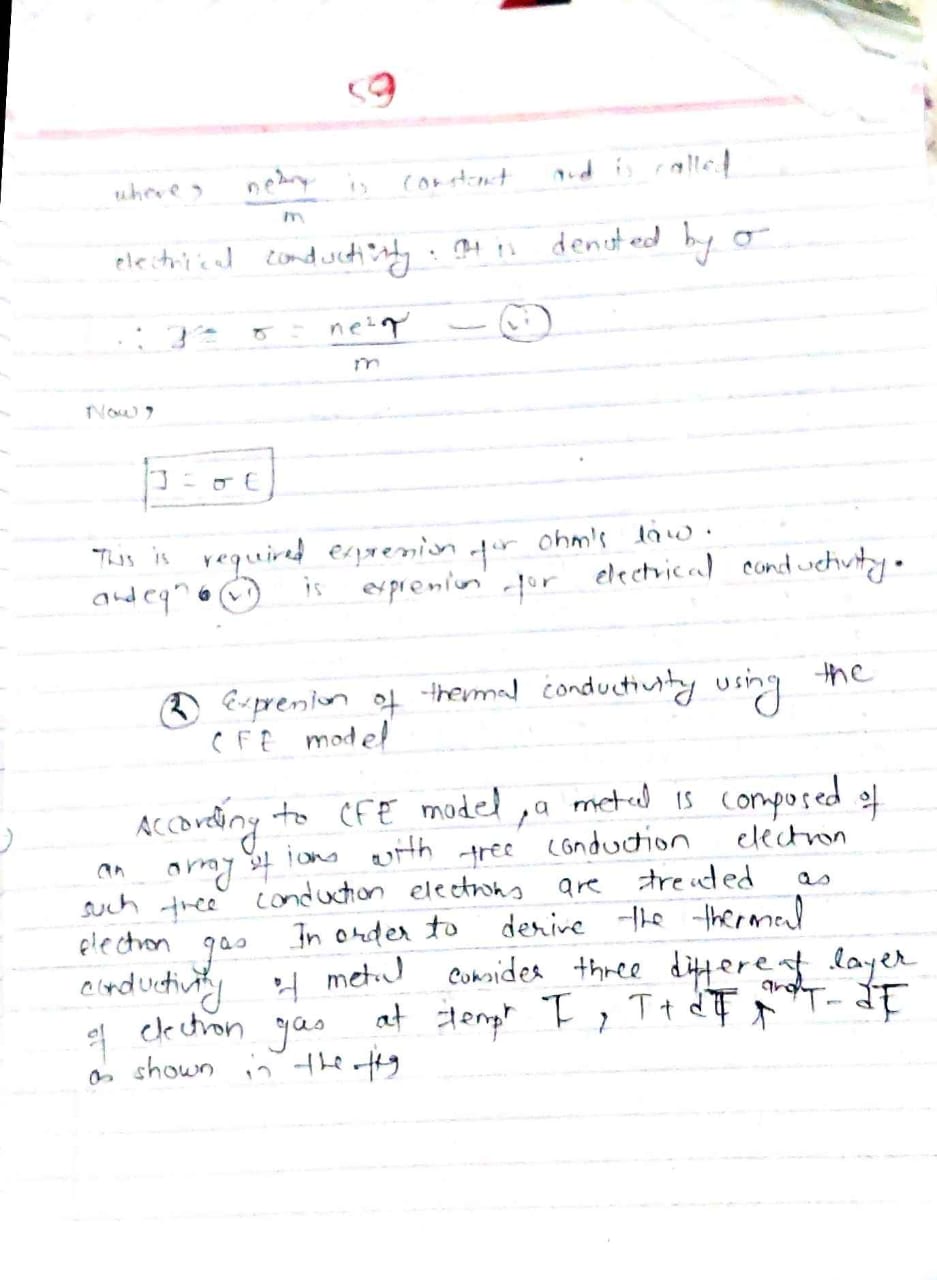 59
where, ne²τ/m is constant and is called
electrical conductivity. It is denoted by σ
∴ J = σ = ne²τ/m — (vi)
Now,
J = σE
This is required expression for ohm's law.
and eqn (vi) is expression for electrical conductivity.
② Expression of thermal conductivity using the
CFE model
According to CFE model, a metal is composed of
an array of ions with free conduction electron
such free conduction electrons are treated as
electron gas In order to derive the thermal
conductivity of metal consider three different layer
of electron gas at tempr T, T+dT and T-dT
as shown in the fig